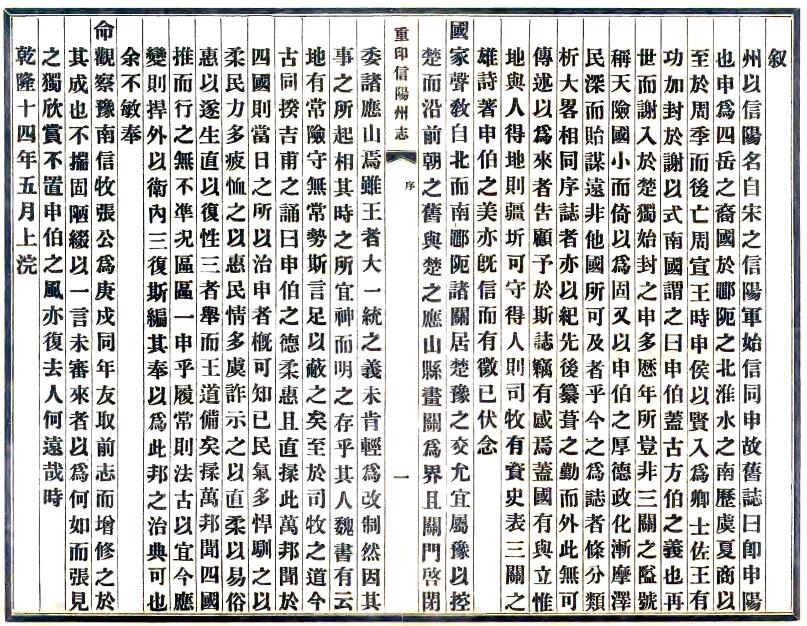 叙
州以信陽名自宋之信陽軍始信同申故舊誌曰卽申陽
也申爲四岳之裔國於郦阨之北淮水之南歷虞夏商以
至於周季而後亡周宣王時申侯以賢入爲卿士佐王有
功加封於謝以式南國謂之曰申伯蓋古方伯之義也再
世而謝入於楚獨始封之申多歷年所豈非三關之隘號
稱天險國小而倚以爲固又以申伯之厚德政化漸摩澤
民深而貽謀遠非他國所可及者乎今之爲誌者條分類
析大畧相同序誌者亦以紀先後纂葺之勤而外此無可
傳述以爲來者告顧予於斯誌竊有感焉蓋國有與立惟
地與人得地則疆圻可守得人則司牧有資史表三關之
雄詩著申伯之美亦旣信而有徵已伏念
國家聲教自北而南郦阨諸關居楚豫之交允宜屬豫以控
楚而沿前朝之舊與楚之應山縣畫關爲界且關門啓閉
重印信陽州志
序
一
委諸應山焉雖王者大一統之義未肯輕爲改制然因其
事之所起相其時之所宜神而明之存乎其人魏書有云
地有常險守無常勢斯言足以蔽之矣至於司牧之道今
古同揆吉甫之誦曰申伯之德柔惠且直揉此萬邦聞於
四國則當日之所以治申者槪可知已民氣多悍馴之以
柔民力多疲恤之以惠民情多虞詐示之以直柔以易俗
惠以遂生直以復性三者舉而王道備矣揉萬邦聞四國
推而行之無不準况區區一申乎履常則法古以宜今應
變則捍外以衛內三復斯編其奉以爲此邦之治典可也
余不敏奉
命觀察豫南信牧張公爲庚戌同年友取前志而增修之於
其成也不揣固陋綴以一言未審來者以爲何如而張見
之獨欣賞不置申伯之風亦復去人何遠哉時
乾隆十四年五月上浣